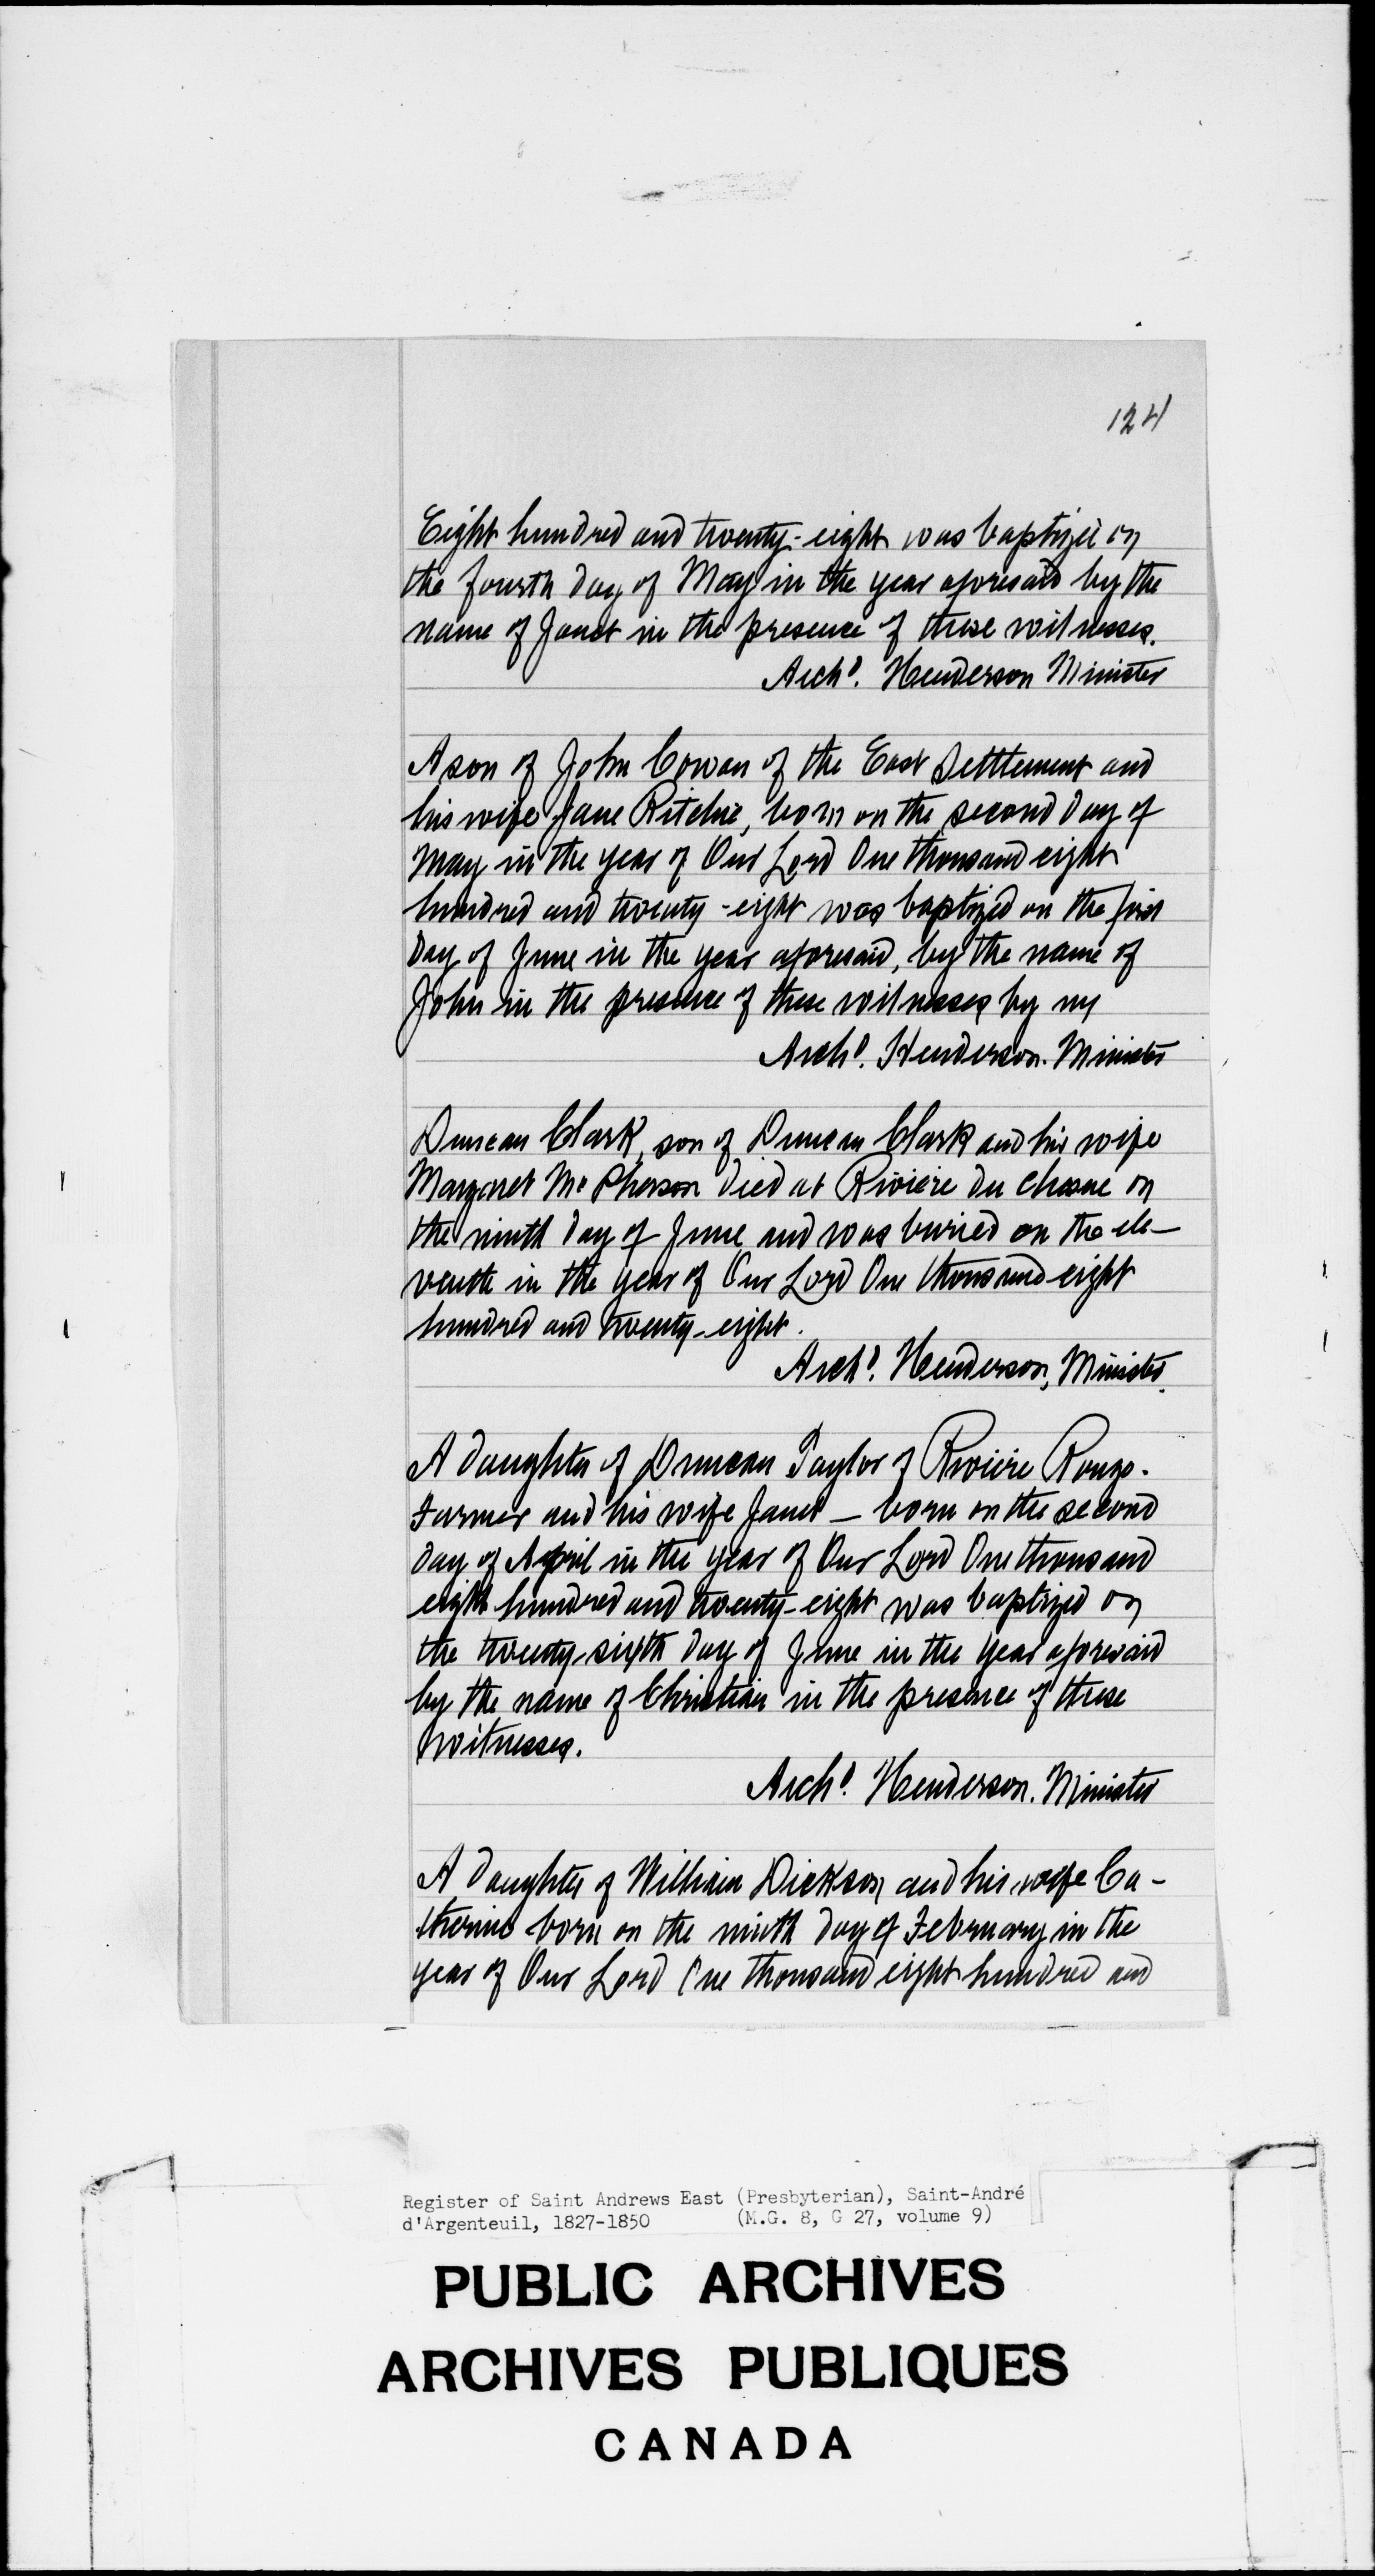 124
Eight hundred and twenty-eight was baptized on
the fourth day of May in the year aforesaid by the
name of Janet in the presence of these witnesses.
Archd. Henderson Minister
A son of John Cowan of the East Settlement and
his wife Jane Ritchie, born on the second day of
May in the year of Our Lord One thousand eight
hundred and twenty-eight was baptized on the first
day of June in the year aforesaid, by the name of
John in the presence of these witnesses by me
Archd. Henderson. Minister
Duncan Clark, son of Duncan Clark and his wife
Margaret McPherson died at Riviere du Chesne on
the ninth day of June and was buried on the ele-
venth in the year of Our Lord One thousand eight
hundred and twenty-eight.
Archd. Henderson, Minister.
A daughter of Duncan Taylor of Riviere Rouge.
Farmer and his wife Janet — born on the second
day of April in the year of Our Lord One thousand
eight hundred and twenty-eight was baptized on
the twenty-sixth day of June in the year aforesaid
by the name of Christian in the presence of these
witnesses.
Archd. Henderson. Minister
A daughter of William Dickson and his wife Ca-
therine born on the ninth day of February in the
year of Our Lord One thousand eight hundred and
Register of Saint Andrews East (Presbyterian), Saint-André
d'Argenteuil, 1827-1850 (M.G. 8, G 27, volume 9)
PUBLIC ARCHIVES
ARCHIVES PUBLIQUES
CANADA